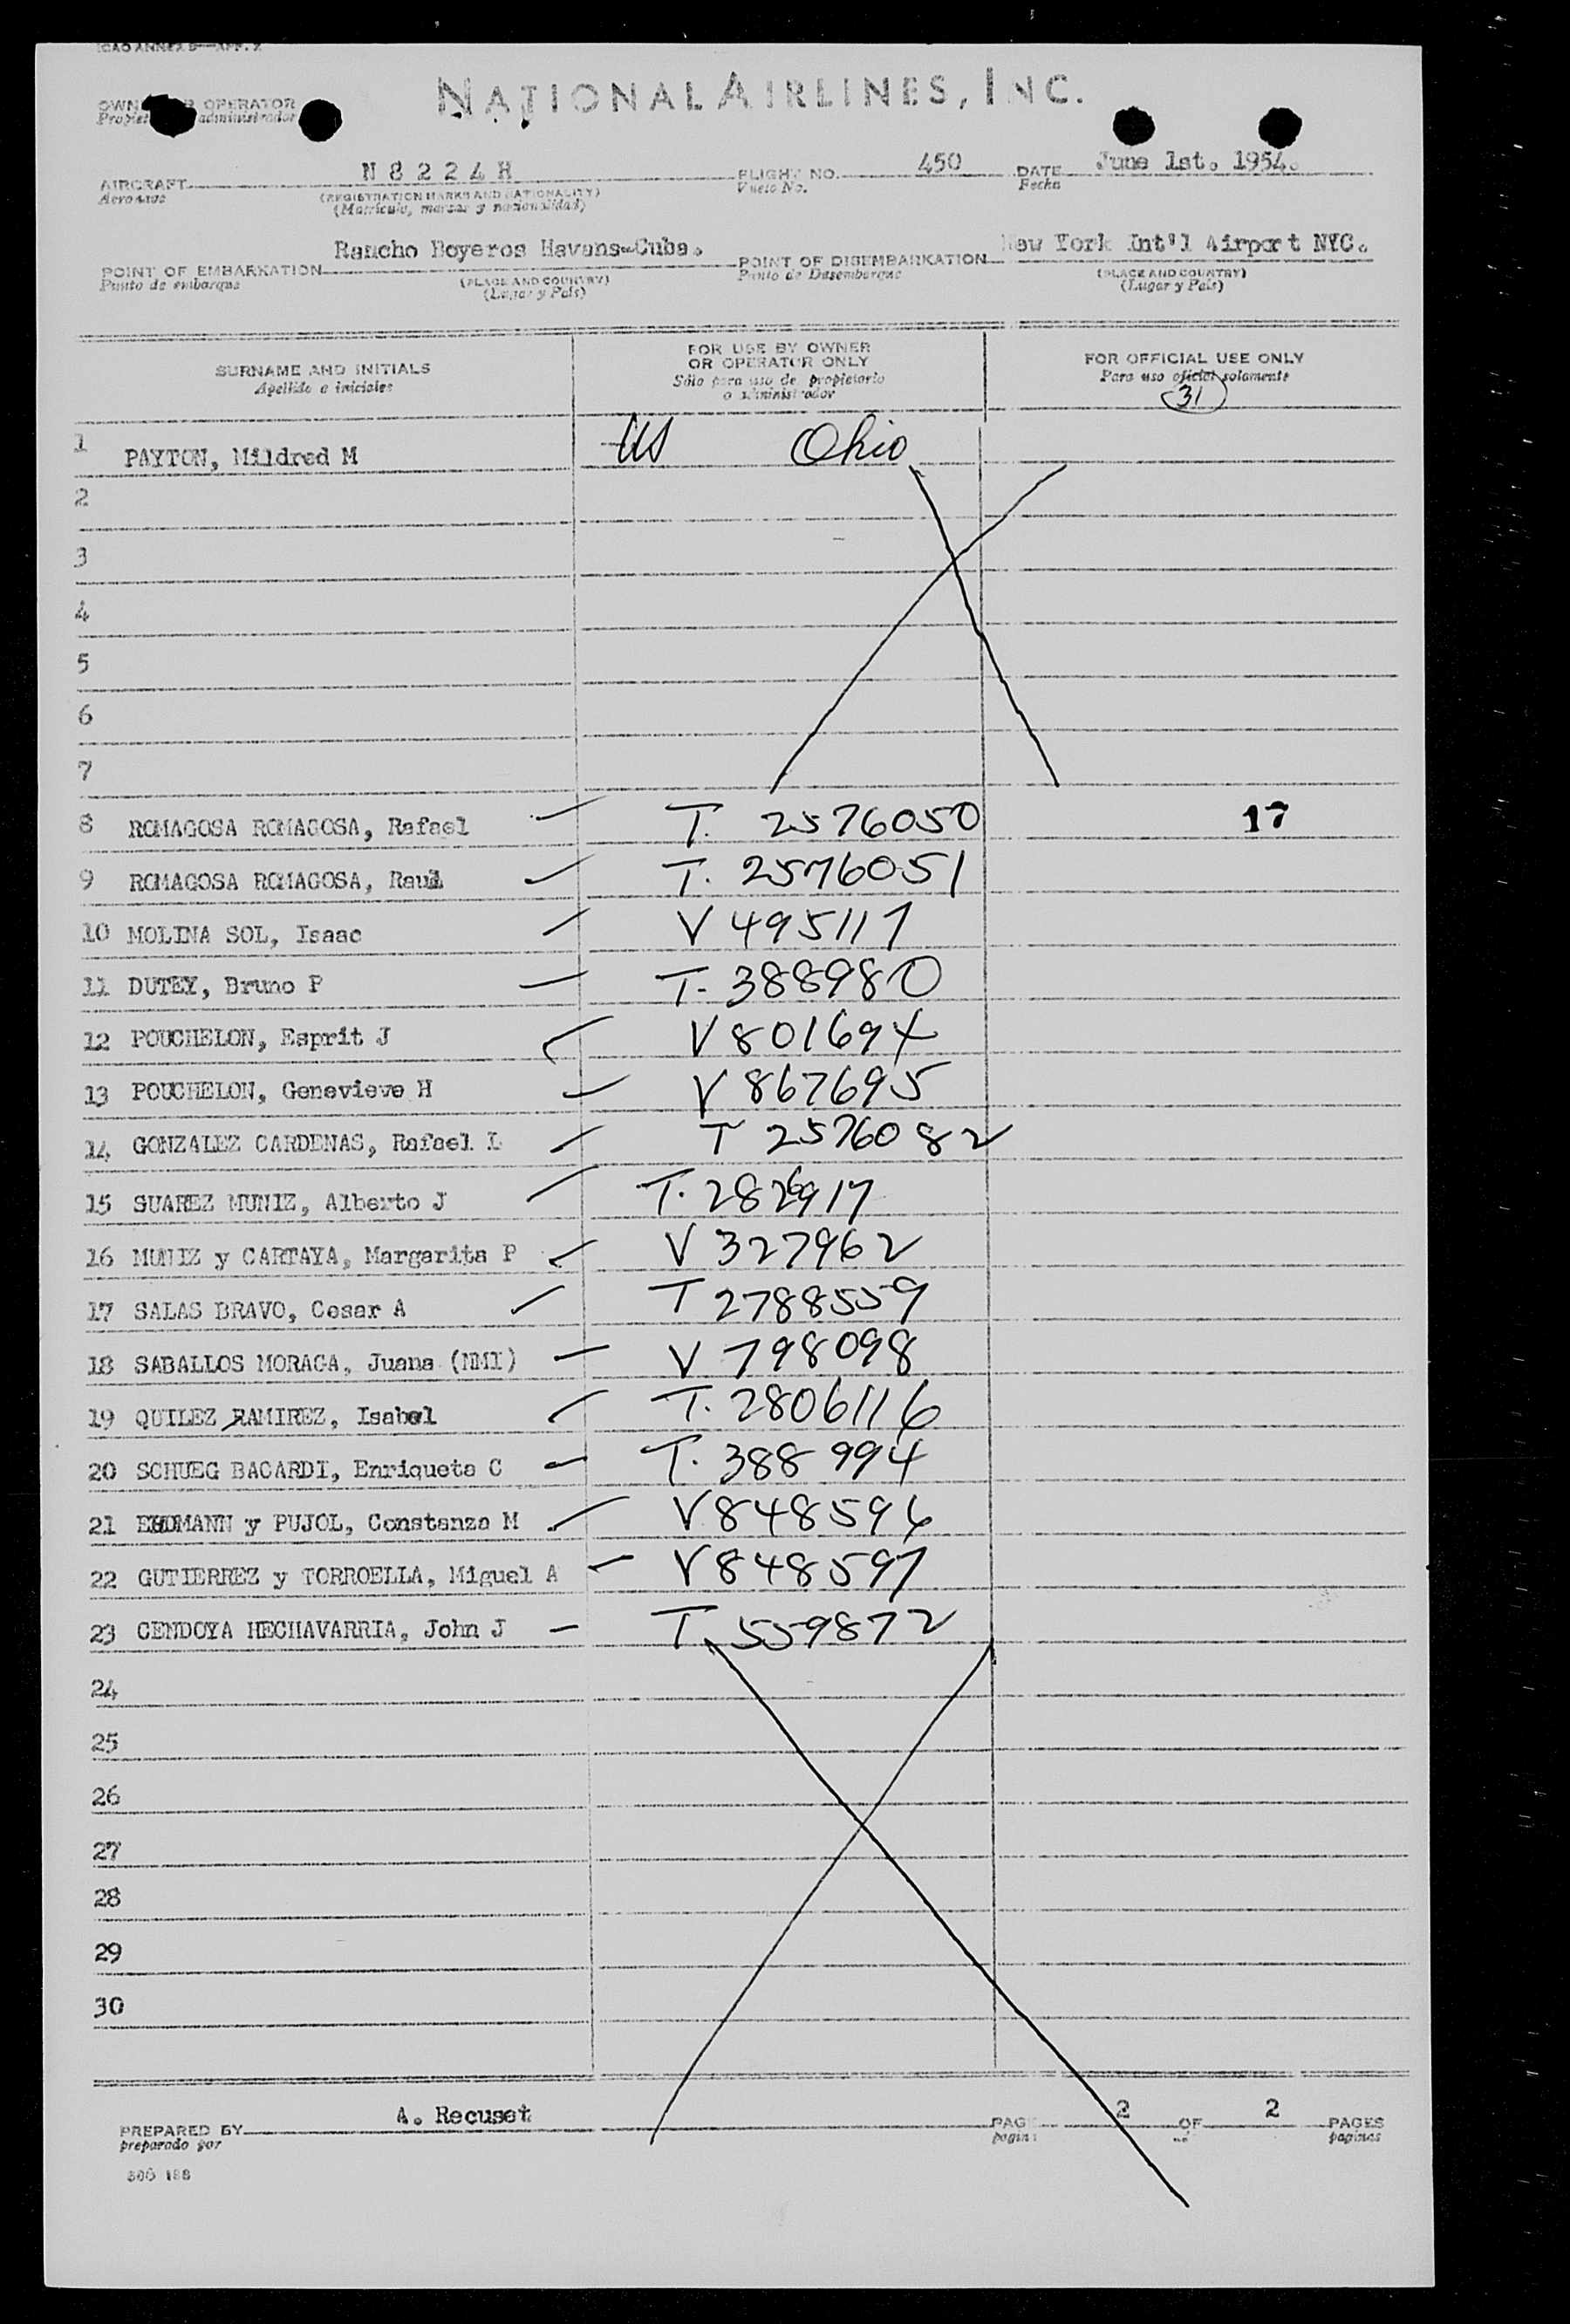 ICAO ANNEX 9—APP. 2
NATIONAL AIRLINES, INC.
OWNER OR OPERATOR
Propietario administrador
AIRCRAFT N 8 2 2 4 H FLIGHT NO. 450 DATE June 1st. 1954.
Aeronave (REGISTRATION MARKS AND NATIONALITY) Vuelo No. Fecha
(Matrícula, marcas y nacionalidad)
POINT OF EMBARKATION Rancho Boyeros Havana-Cuba. POINT OF DISEMBARKATION New York Int'l Airport NYC.
Punto de embarque (PLACE AND COUNTRY) Punto de Desembarque (PLACE AND COUNTRY)
(Lugar y País) (Lugar y País)
SURNAME AND INITIALS
Apellido e iniciales
FOR USE BY OWNER
OR OPERATOR ONLY
Sólo para uso de propietario
o administrador
FOR OFFICIAL USE ONLY
Para uso oficial solamente
31
1 PAYTON, Mildred M US Ohio
2
3
4
5
6
7
8 ROMAGOSA ROMAGOSA, Rafael T. 2576050 17
9 ROMAGOSA ROMAGOSA, Raul T. 2576051
10 MOLINA SOL, Isaac V 495117
11 DUTEY, Bruno P T. 388980
12 POUCHELON, Esprit J V 801694
13 POUCHELON, Genevieve H V 867695
14 GONZALEZ CARDENAS, Rafael L T 2576082
15 SUAREZ MUNIZ, Alberto J T.
16 MUNIZ y CARTAYA, Margarita P V 327962
17 SALAS BRAVO, Cesar A T 2788559
18 SABALLOS MORAGA, Juana (NMI) V 798098
19 QUILEZ RAMIREZ, Isabel T. 2806116
20 SCHUEG BACARDI, Enriqueta C T. 388994
21 y PUJOL, Constanza M V 848596
22 GUTIERREZ y TORROELLA, Miguel A V 848597
23 CENDOYA HECHAVARRIA, John J T. 559872
24
25
26
27
28
29
30
PREPARED BY A. Recuset PAGE 2 OF 2 PAGES
preparado por pagina paginas